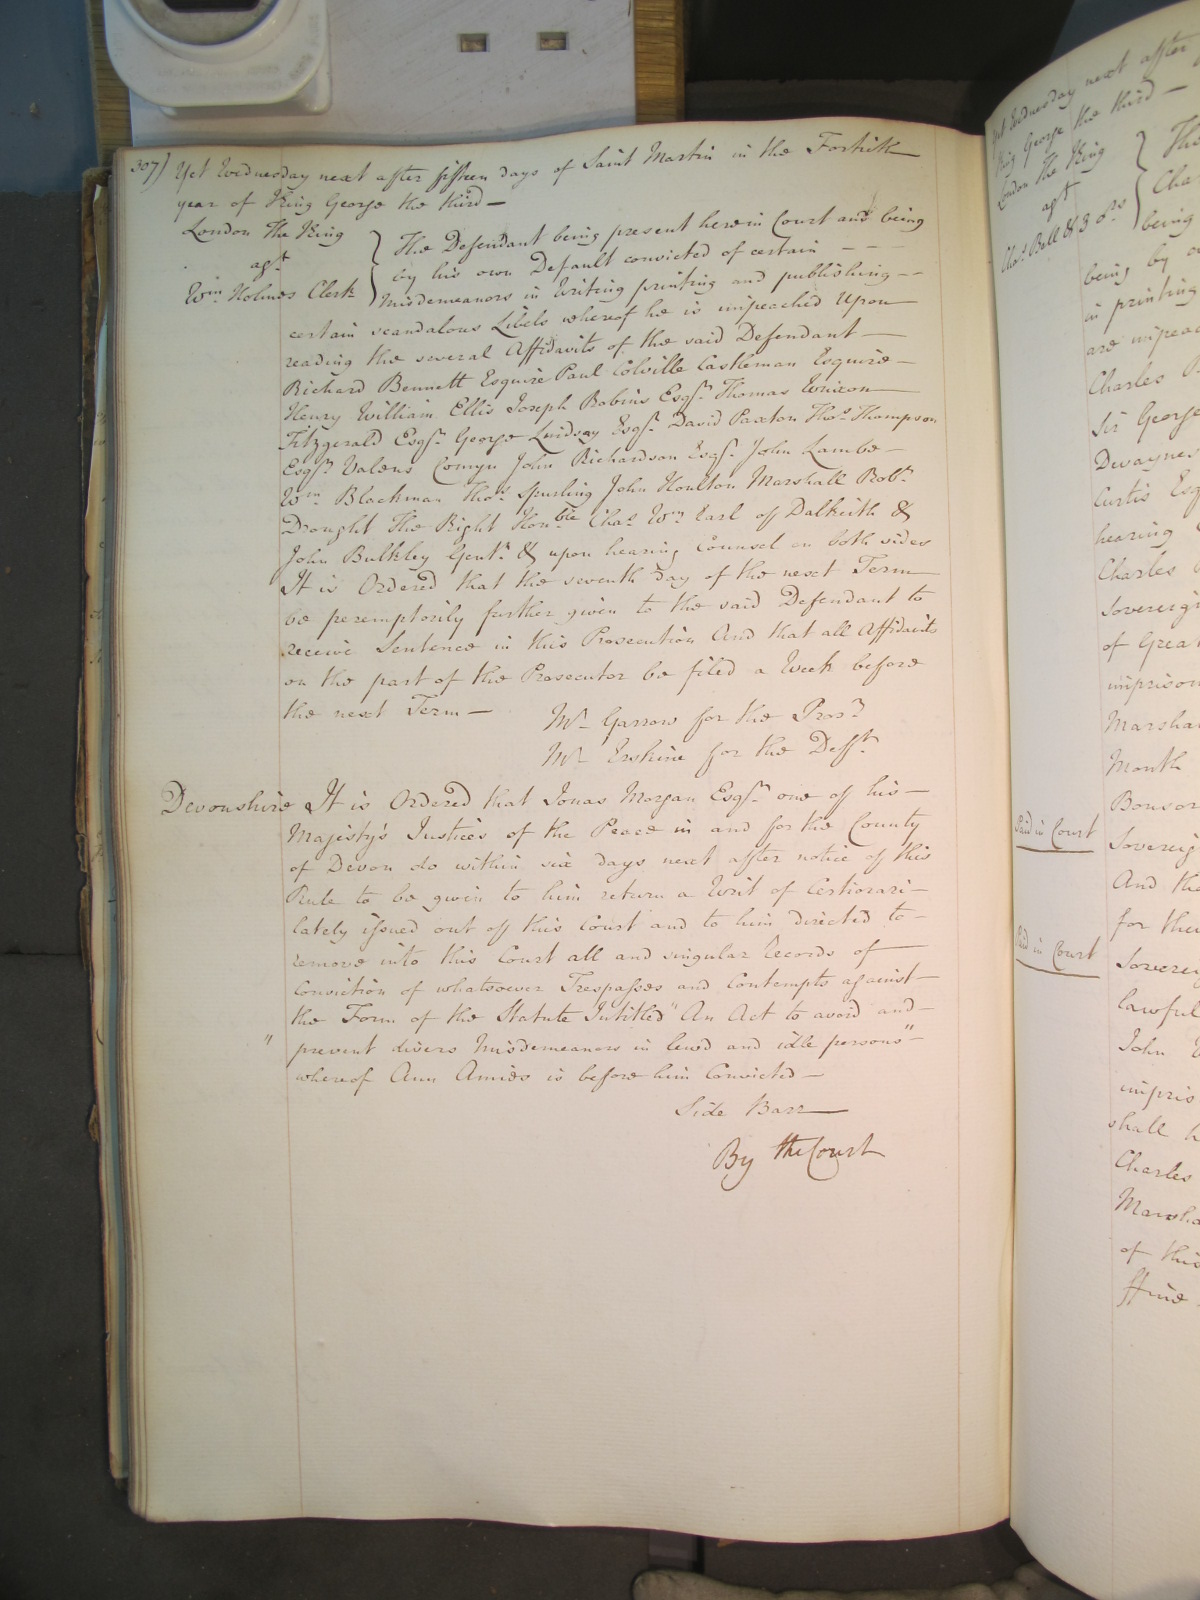 307) Yet Wednesday next after fifteen days of Saint Martin in the Fortieth
year of King George the third —
London The King
agt
Wm Holmes Clerk
The Defendant being present here in Court and being
by his own Default convicted of certain — —
Misdemeanors in Writing printing and publishing — —
certain scandalous Libels whereof he is impeached Upon
reading the several Affidavits of the said Defendant —
Richard Bennett Esquire Paul Colville Castleman Esquire —
Henry William Ellis Joseph Robins Esqr. Thomas
Fitzgerald Esqr. George Lindsay Esqr. David Paxton Thos. Thompson
Esqr. Valens Comyn John Richardson Esqr. John Lambe —
Wm Blackman Thos. Spurling John Houlton Marshall Robt.
Drought The Right Honble Chas. Wm Earl of Dalkeith &
John Bulkley Gentn. & upon hearing Counsel on both sides
It is Ordered that the seventh day of the next Term
be peremptorily further given to the said Defendant to
receive Sentence in this Prosecution And that all Affidavits
on the part of the Prosecutor be filed a Week before
the next Term —
Mr. Garrow for the Prosr
Mr. Erskine for the Deft.
Devonshire It is Ordered that Jonas Morgan Esqr. one of his —
Majesty's Justices of the Peace in and for the County
of Devon do within six days next after notice of this
Rule to be given to him return a Writ of Certiorari —
lately issued out of this Court and to him directed to —
remove into this Court all and singular Records of
Conviction of whatsoever Trespasses and Contempts against
the Form of the Statute Intitled "An Act to avoid and —
" prevent divers Misdemeanors in lewd and idle persons" —
whereof Ann Amies is before him Convicted —
Side Barr
By the Court
Yet Wednesday next after
King George the third —
London The King
agt
Chas. Bell & 3 ors
being
being by
in printing
are impea
Charles
Sir George
Devaynes
Curtis Esq
hearing
Charles
Sovereign
of Grea
imprison
Marsha
Month
Bonsor
Paid in Court
Sovereig
And the
for their
Paid in Court
Soverei
lawful
John
impris
shall
Charles
Marsha
of this